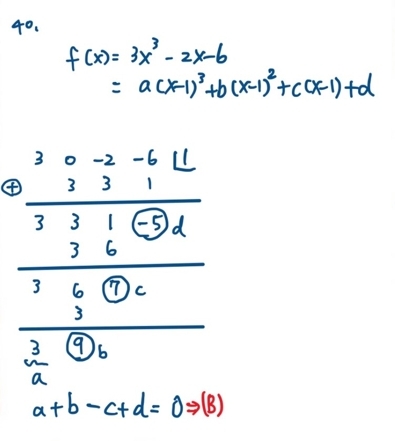 40.
f(x)= 3x³ - 2x-6
= a(x-1)³+b(x-1)²+c(x-1)+d
3 0 -2 -6 ⌊1
⊕ 3 3 1
3 3 1 (-5) d
3 6
3 6 (7) c
3
3 (9) b
a
a+b-c+d= 0⇒(B)